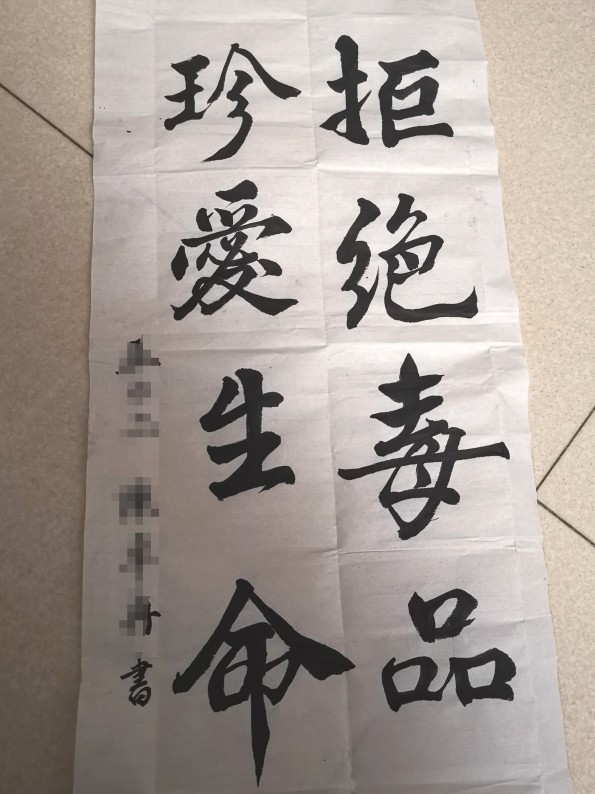 拒绝毒品
珍愛生命
書